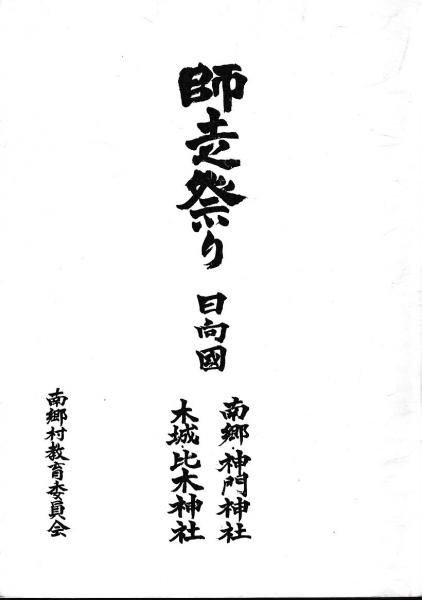 師走祭り 日向國
南郷・神門神社
木城・比木神社
南郷村教育委員会